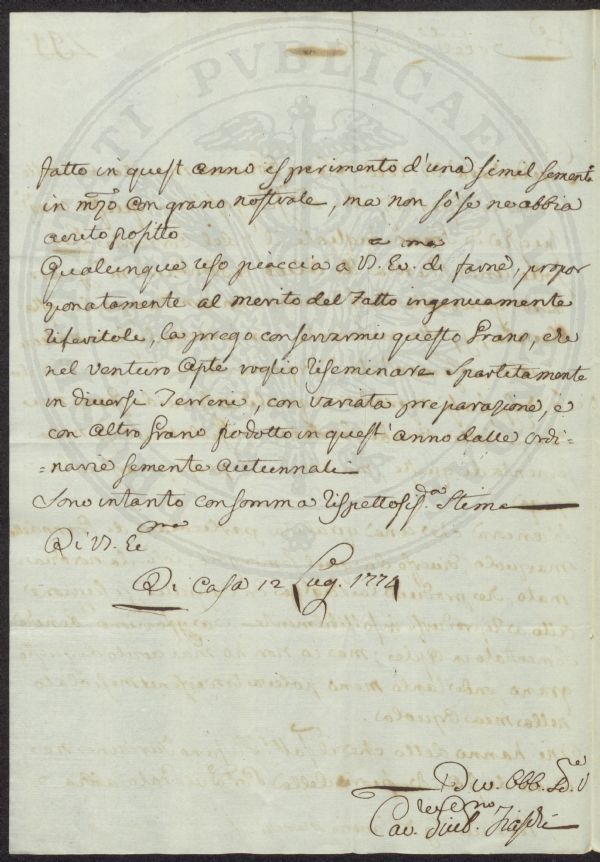 fatto in quest'anno esperimento d'una simil sement.e
in m.zo con grano nostrale, ma non sò se ne abbia
avuto profitto
Qualunque uso piaccia a V. Ecc.a ma di farne, propor
zionatamente al merito del Fatto ingenuamente
riferitole, la prego conservarmi questo Grano, che
nel venturo Aple voglio riseminare spartitamente
in diversi Terreni, con variata preparazione, e
con altro Grano prodotto in quest'anno dalle ordi=
=narie semente autunnali
Sono intanto con somma rispettosiss.a Stima
Di V. Ec.ma
Di Casa 12 Lug. 1774
Div. Obb. S.re V
Cav.